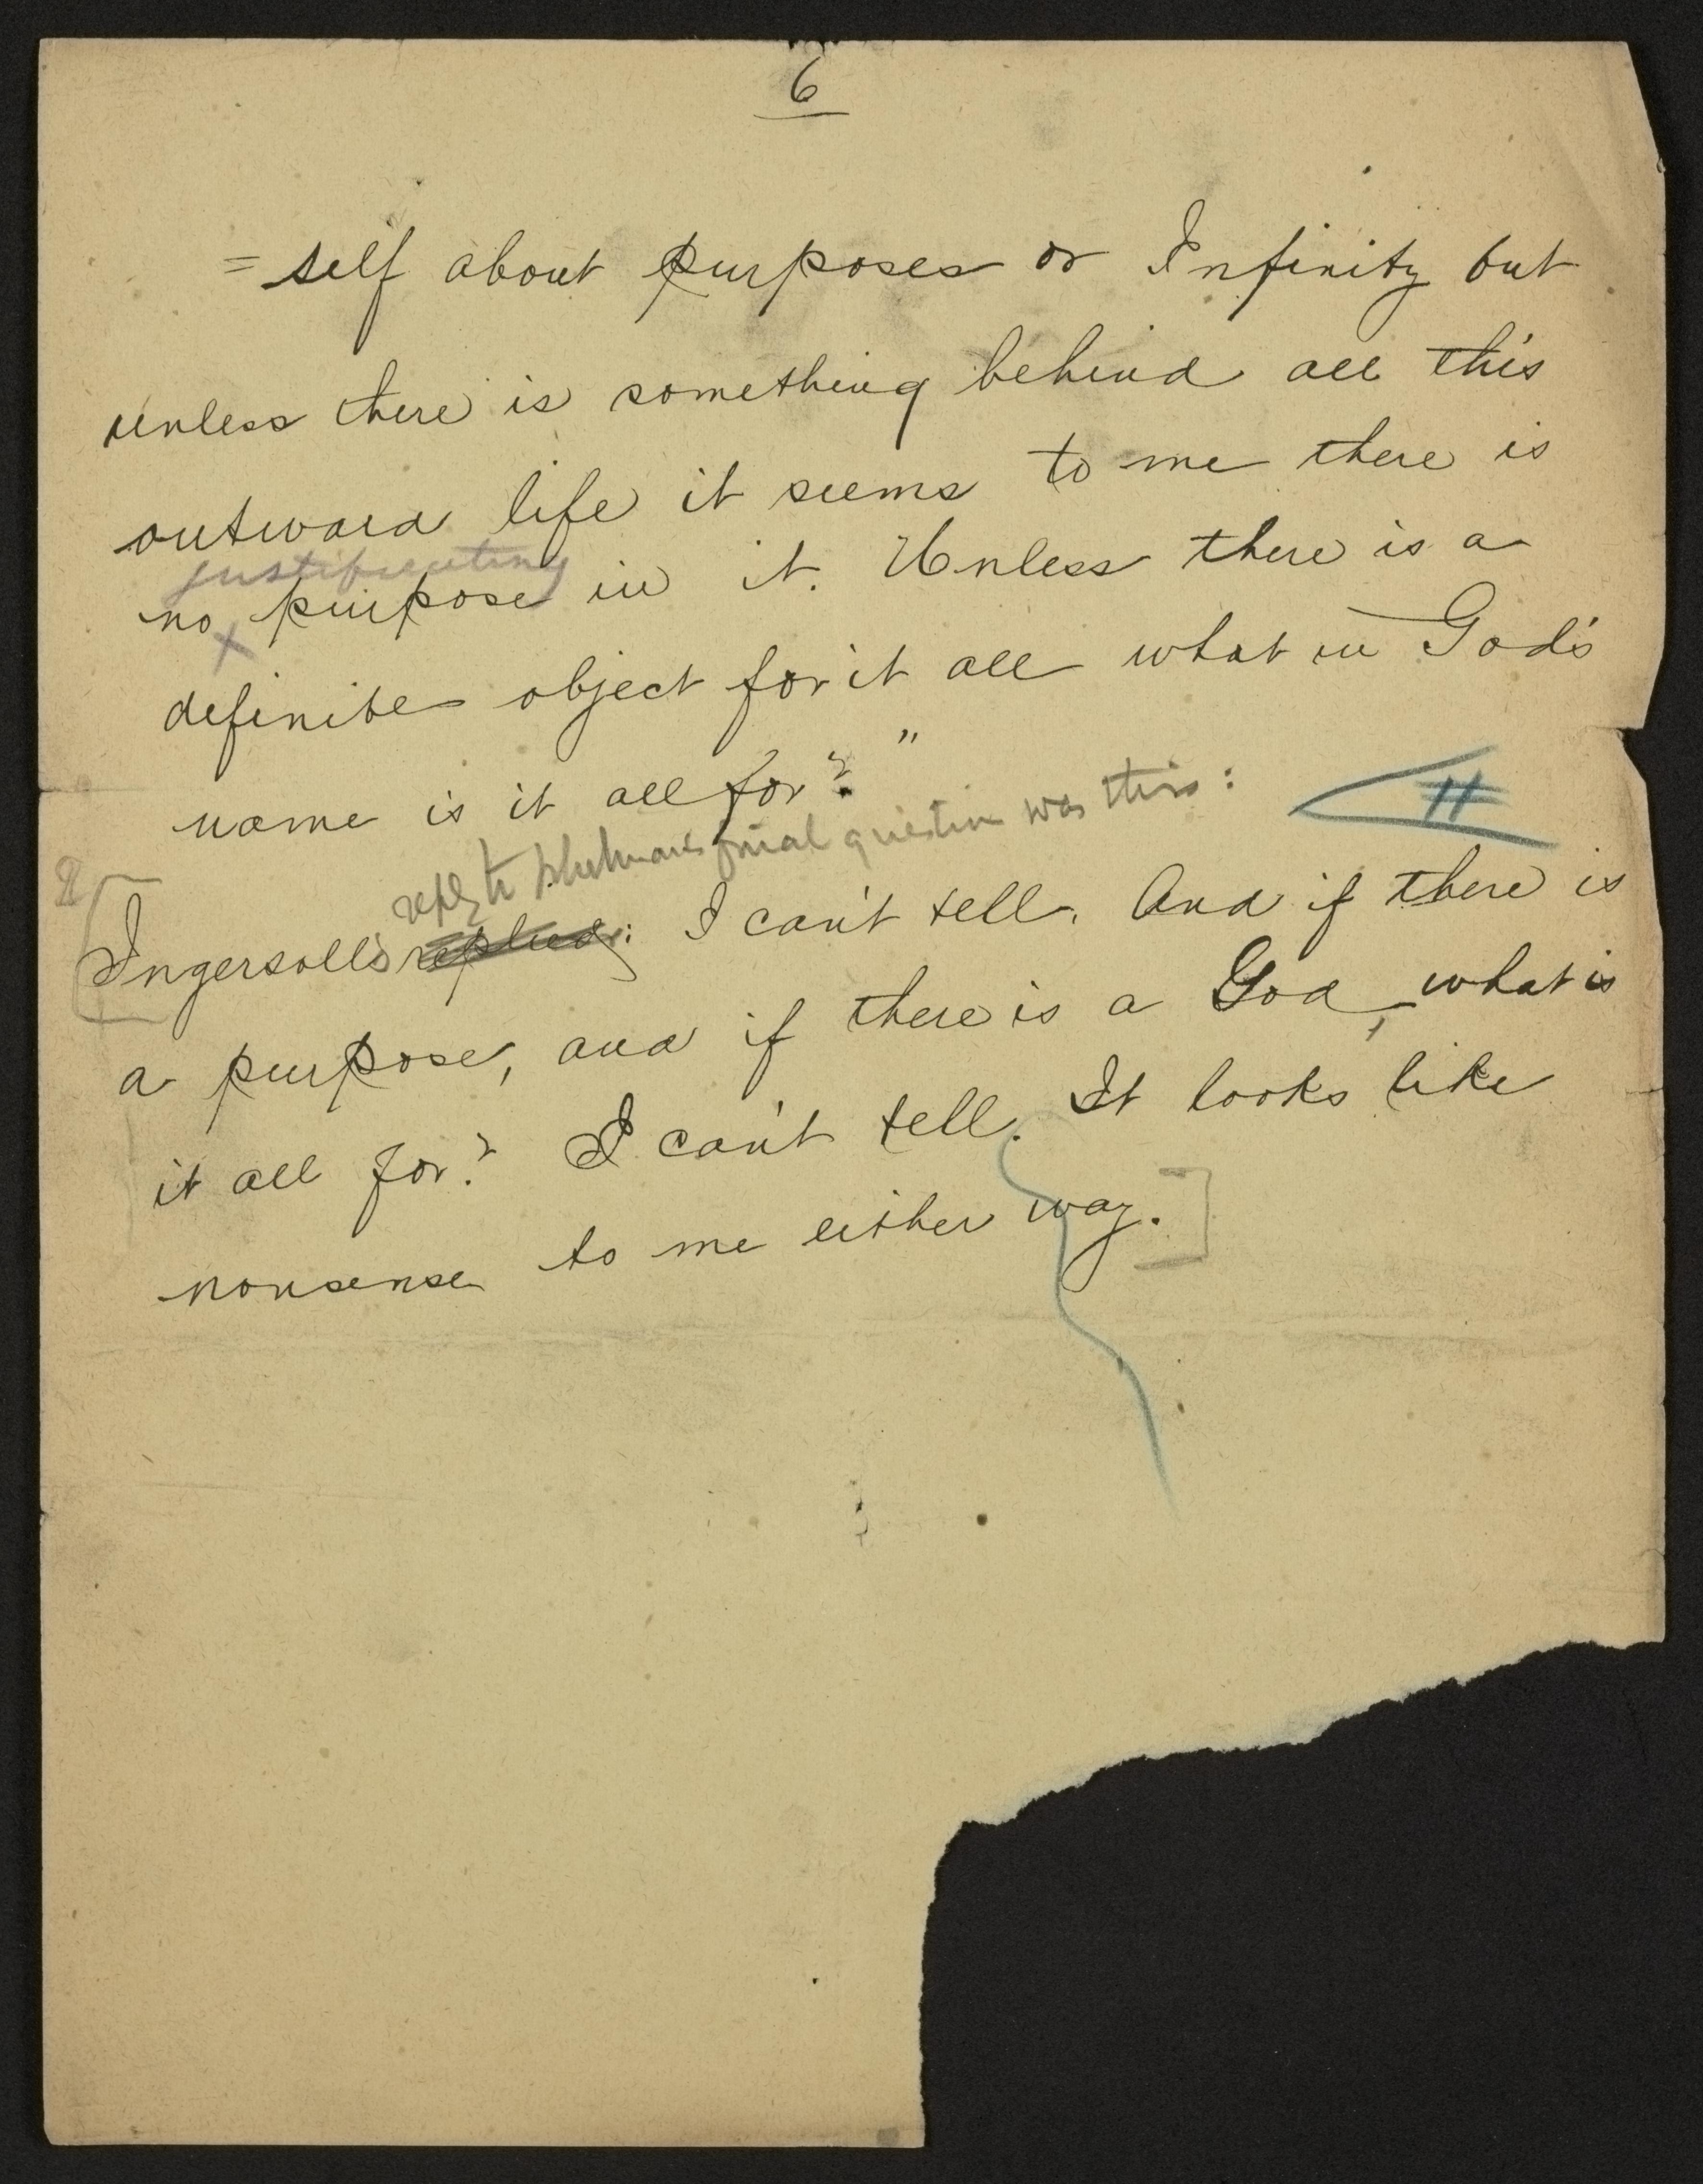 6
= self about purposes or Infinity but
unless there is something behind all this
outward life it seems to me there is
justificating
no purpose in it. Unless there is a
x
definite object for it all what in God's
name is it all for? "
reply to Whitman's final question was this:
Ingersoll's replied: I can't tell. And if there is
a purpose, and if there is a God, what is
it all for? I can't tell. It looks like
nonsense to me either way.]